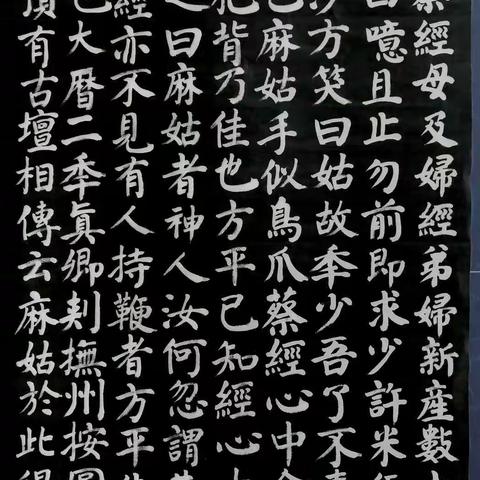 蔡經母及婦經弟婦新產數
曰噫且止勿前即求少許米
沙方笑曰姑故秊少吾了不喜
已麻姑手似鳥爪蔡經心中念
爬背乃佳也方平已知經心中
之曰麻姑者神人汝何忽謂其
經亦不見有人持鞭者方平告
已大曆二秊眞卿刾撫州按圖
頂有古壇相傳云麻姑於此得